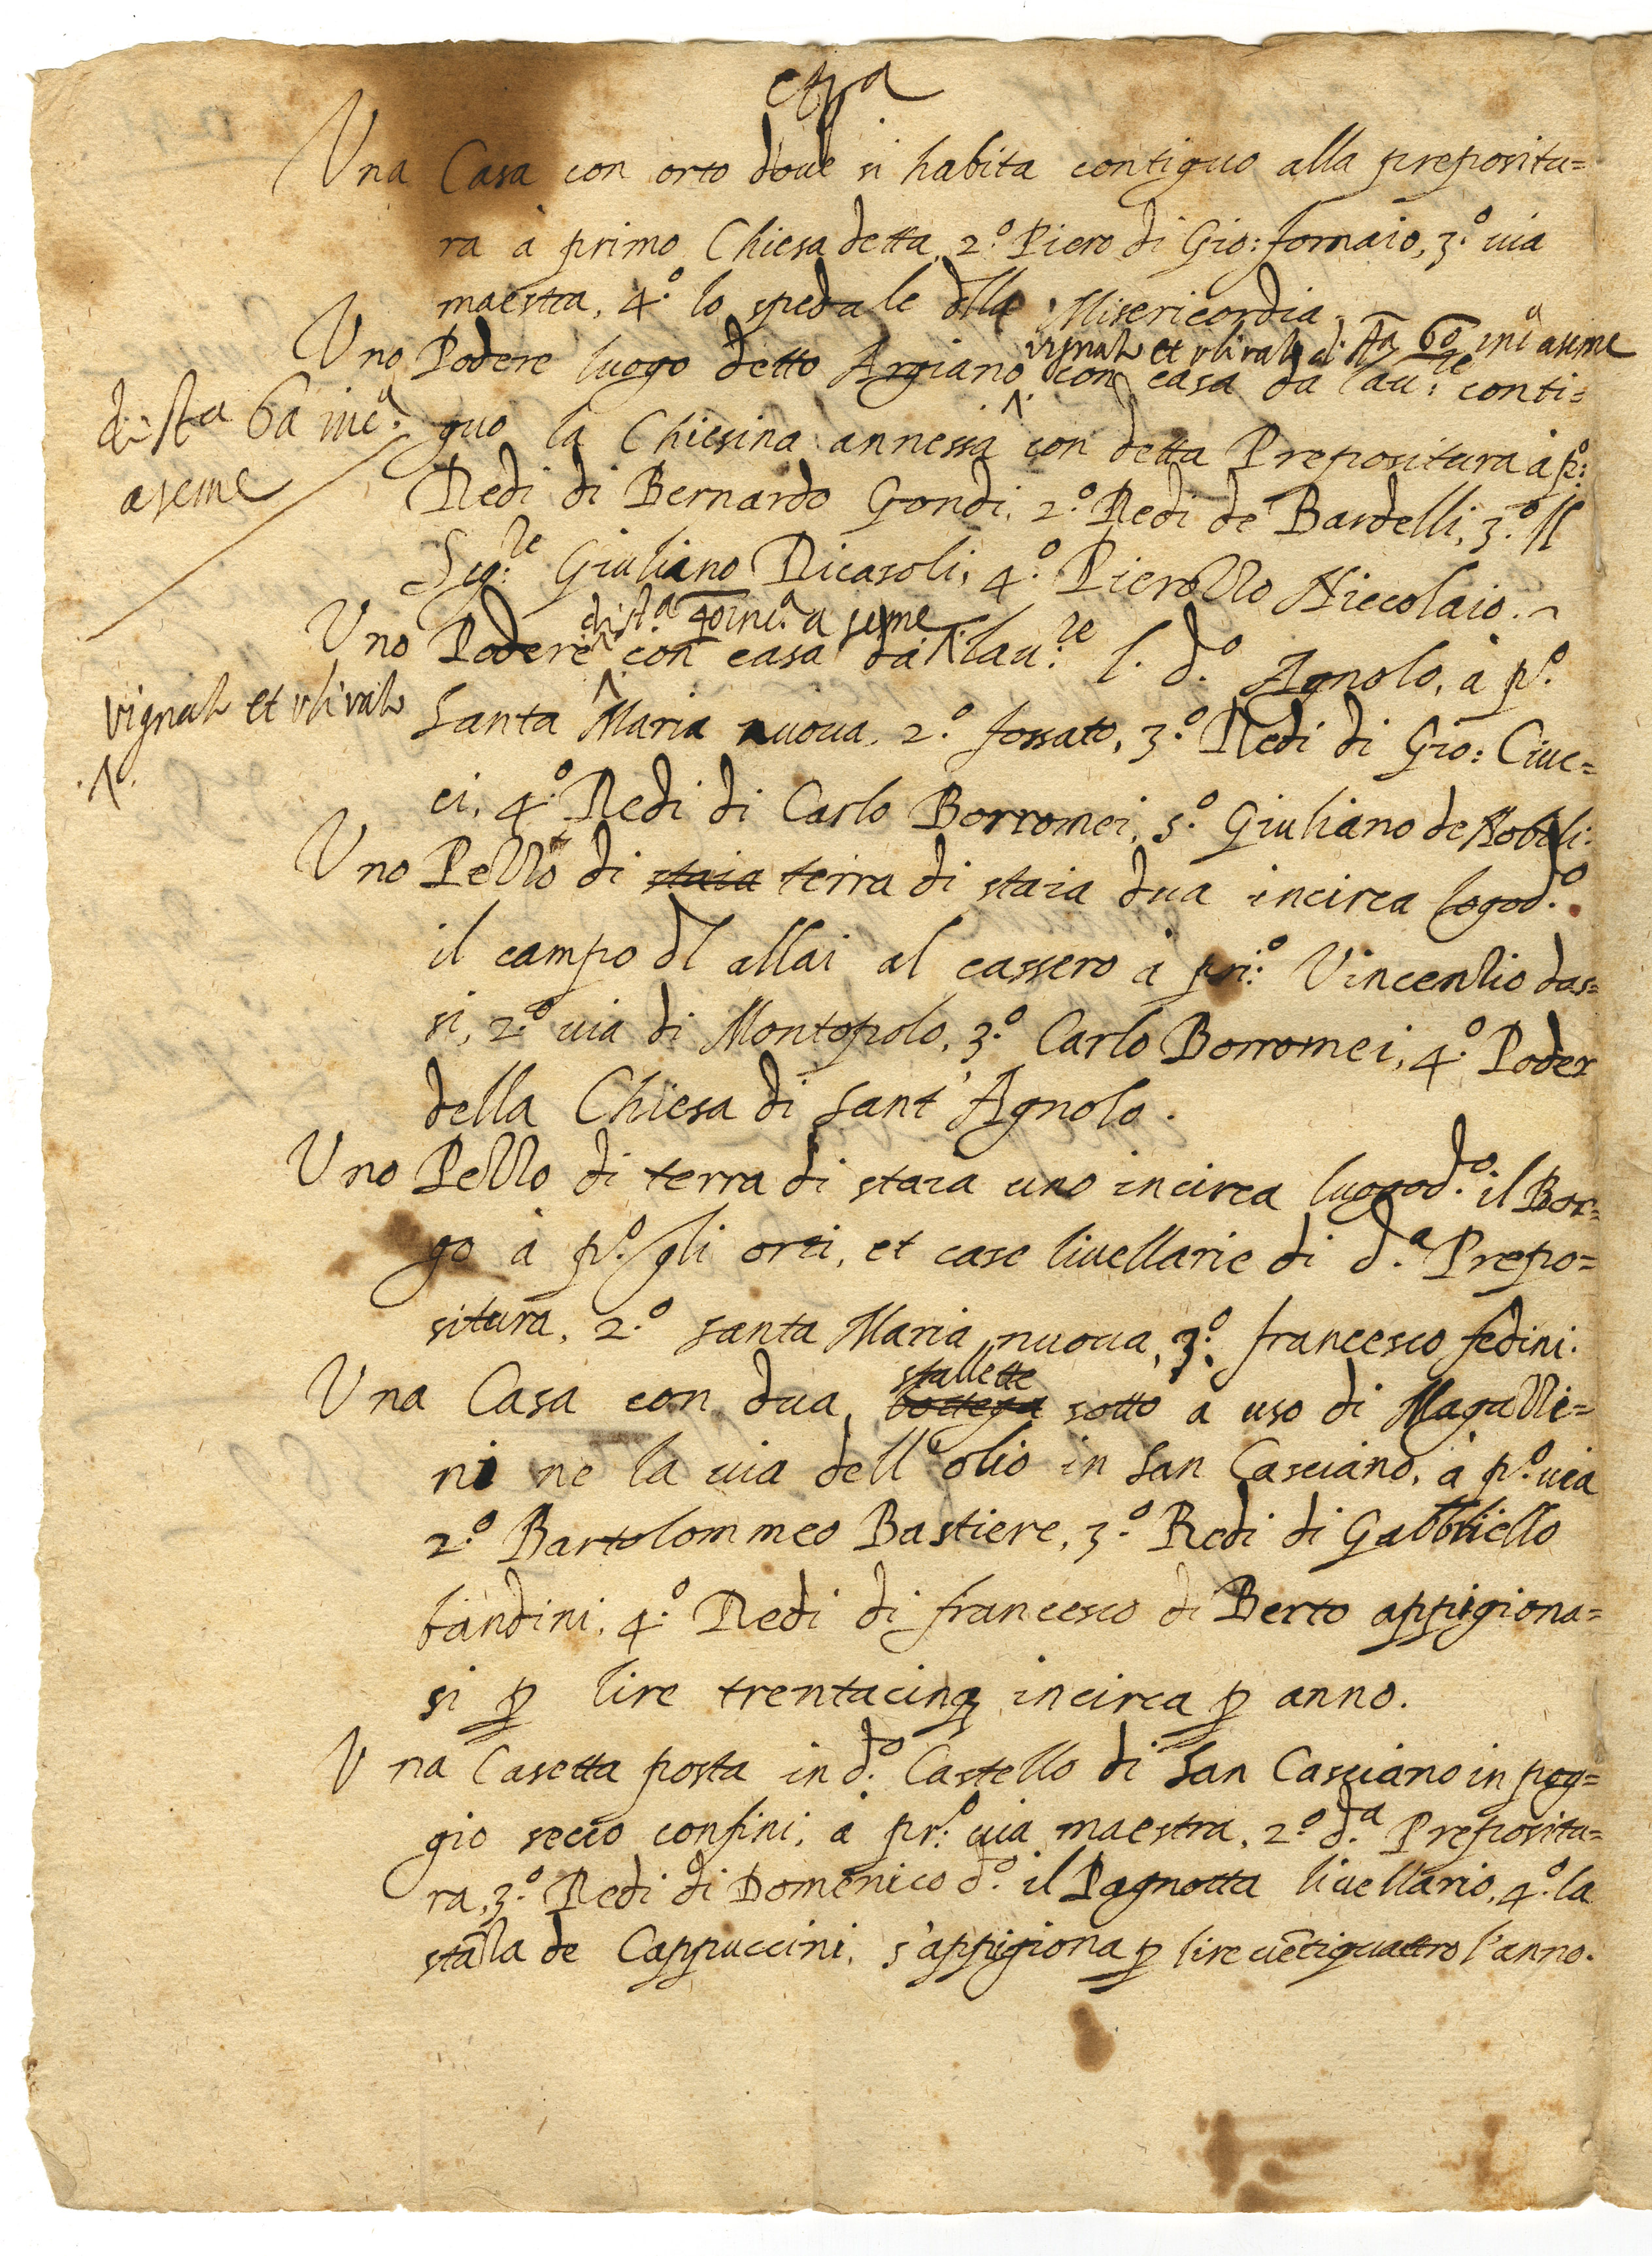 Una Casa con orto doue si habita contiguo alla prepositu=
ra à primo Chiesa detta, 2.º Piero di Gio: fornaio, 3.º uia
maestra, 4.º lo spedale dlla Misericordia.
vignato et vlivato di sta 60 inca aseme
Uno Podere luogo detto Argiano con casa da lau:re conti=
di sta 60 inca.
aseme
guo la Chiesina annessa con detta Prepositura à pº:
Redi di Bernardo Gondi, 2.º Redi de Bardelli, 3.º Il
Sig:re Giuliano Ricasoli, 4.º Pierozzo Niccolaio.
di sta. 40 inca. a seme
Uno Podere con casa da lau:re l. d.º Agnolo, à p.º
vignato et vlivato
Santa Maria nuoua, 2.º fossato, 3.º Redi di Gio: Ciuc=
ci, 4.º Redi di Carlo Borromei, 5.º Giuliano de Nobili.
Uno Pezzo di staia terra di staia dua incirca logod.º
il campo dl allai al cassero à pri:º Vincenzio das=
si, 2.º uia di Montopolo, 3.º Carlo Borromei, 4.º Poder
della Chiesa di Sant'Agnolo.
Uno Pezzo di terra di staia uno incirca luogod.º il Bor=
go à p.º gli orti, et case liuellarie di d.a Prepo=
situra, 2.º Santa Maria nuoua, 3.º francesco fedini.
stallette
Una Casa con dua bottega sotto a uso di Magazzi=
ni ne la uia dell'olio in San Casciano, à p.º uia
2.º Bartolommeo Bastiere, 3.º Redi di Gabbriello
bandini, 4.º Redi di francesco di Berto appigiona=
si p lire trentacinq incirca p anno.
Una Casetta posta in d.º Castello di San Casciano in pog=
gio secco confini, à pr:º uia maestra, 2.º d.a Prepositu=
ra, 3.º Redi di Domenico d.º il Pagnotta liuellario, 4.º la
stalla de Cappuccini, s'appigiona p lire uētiquattro l'anno.